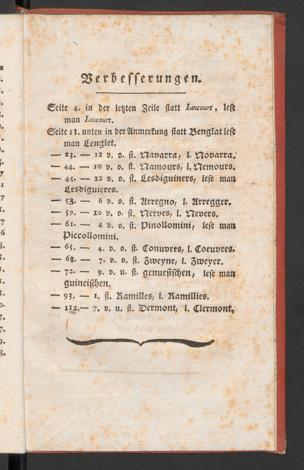 Verbesserungen.
Seite 4. in der letzten Zeile statt Iancourt, lese
man Iaucourt.
Seite 13. unten in der Anmerkung statt Benglat lese
man Lenglet.
— 23. — 12 v. o. st. Navarra, l. Novarra.
— 44. — 10 v. o. st. Namours, l. Nemours.
— 45. — 12 v. o. st. Lesdiguiners, lese man
Lesdiguieres.
— 53. — 6 v. o. st. Arregno, l. Arregger.
— 59. — 10 v. o. st. Nerves, l. Nevers.
— 61. — 4 v. o. st. Pinollomini, lese man
Piccollomini.
— 65. — 4. v. o. st. Conuvres, l. Coeuvres.
— 68. — 7. v. o. st. Zweyne, l. Zweyer.
— 72. — 9. v. u. st. genuesischen, lese man
guineischen.
— 93. — 1. st. Ramilles, l. Ramillies.
— 112. — 7. v. u. st. Dermont, l. Clermont.